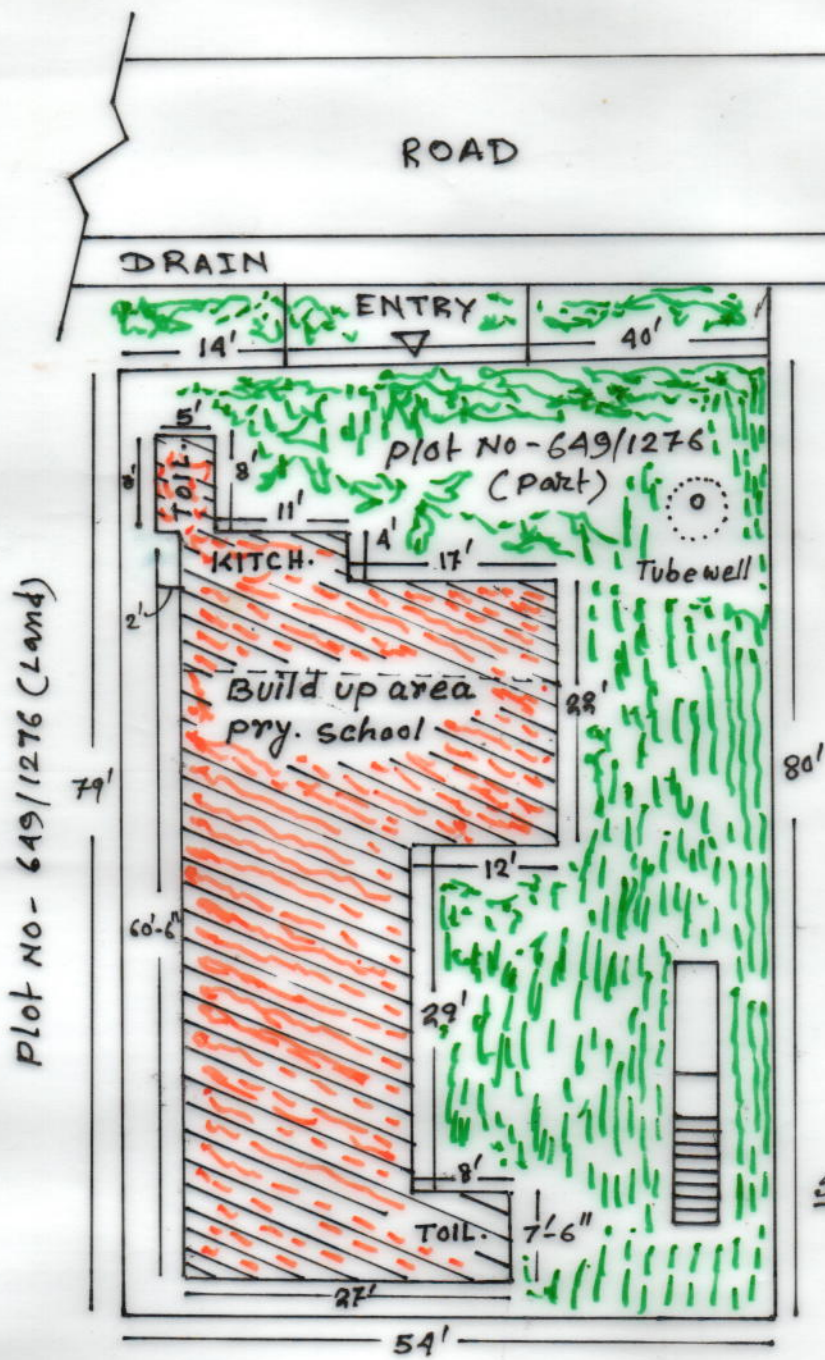 ROAD
DRAIN
ENTRY
14'
40'
5'
8'
8'
TOIL.
Plot No-649/1276
(Part)
11'
4'
KITCH.
17'
Tubewell
2'
Build up area
pry. school
22'
Plot No- 649/1276 (Land)
79'
80'
12'
60'-6"
29'
8'
TOIL.
7'-6"
27'
54'